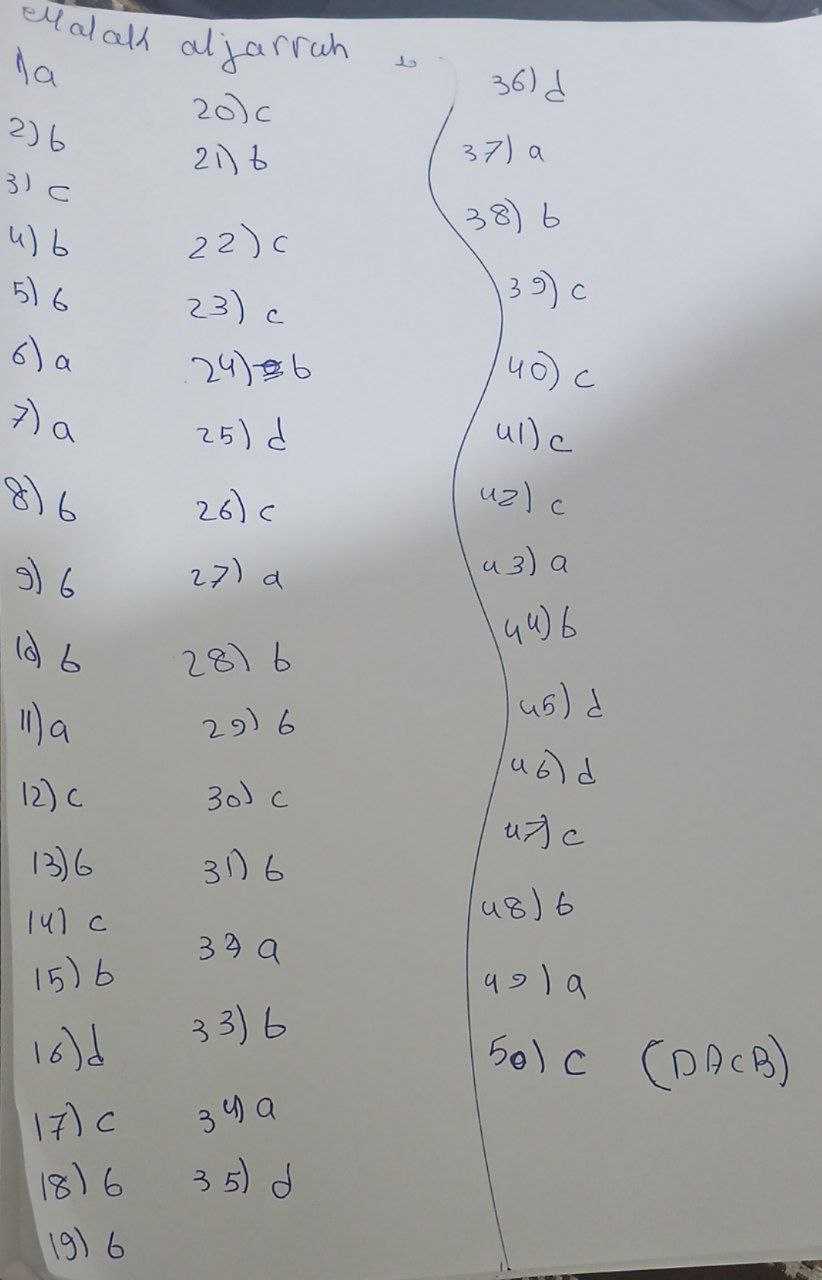 Malak aljarrah
1) a
2) b
3) c
4) b
5) b
6) a
7) a
8) b
9) b
10) b
11) a
12) c
13) b
14) c
15) b
16) d
17) c
18) b
19) b
20) c
21) b
22) c
23) c
24) b
25) d
26) c
27) a
28) b
29) b
30) c
31) b
32) a
33) b
34) a
35) d
36) d
37) a
38) b
39) c
40) c
41) c
42) c
43) a
44) b
45) d
46) d
47) c
48) b
49) a
50) c (DACB)